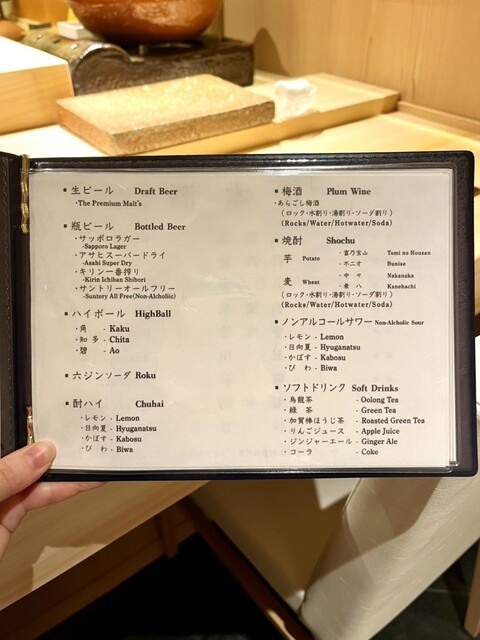 ▪生ビール Draft Beer
・The Premium Malt's
▪瓶ビール Bottled Beer
・サッポロラガー
-Sapporo Lager
・アサヒスーパードライ
-Asahi Super Dry
・キリン一番搾り
-Kirin Ichiban Shibori
・サントリーオールフリー
-Suntory All Free(Non-Alcholiic)
▪ハイボール HighBall
・角 - Kaku
・知多 - Chita
・碧 - Ao
▪六ジンソーダ Roku
▪酎ハイ Chuhai
・レモン - Lemon
・日向夏 - Hyuganatsu
・かぼす - Kabosu
・びわ - Biwa
▪梅酒 Plum Wine
・あらごし梅酒
(ロック・水割り・湯割り・ソーダ割り)
(Rocks/Water/Hotwater/Soda)
▪焼酎 Shochu
芋 Potato ・富乃宝山 Tomi no Houzan
・不二才 Bunise
麦 Wheat ・中々 Nakanaka
・兼八 Kanehachi
(ロック・水割り・湯割り・ソーダ割り)
(Rocks/Water/Hotwater/Soda)
▪ノンアルコールサワー Non-Alcholic Sour
・レモン - Lemon
・日向夏 - Hyuganatsu
・かぼす - Kabosu
・びわ - Biwa
▪ソフトドリンク Soft Drinks
・烏龍茶 - Oolong Tea
・緑茶 - Green Tea
・加賀棒ほうじ茶 - Roasted Green Tea
・りんごジュース - Apple Juice
・ジンジャーエール - Ginger Ale
・コーラ - Coke